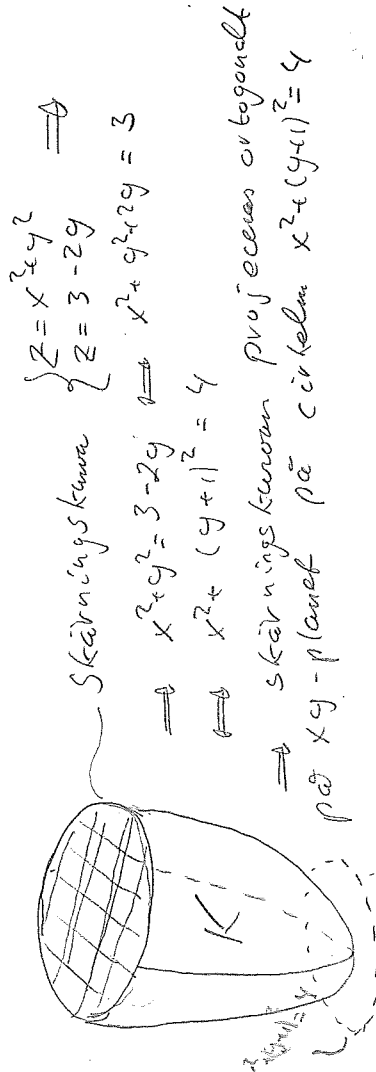 Skärningskurva { z = x²+y² ⇒
z = 3-2y
⇒ x²+y² = 3-2y ⇔ x²+y²+2y = 3
⇔ x²+(y+1)² = 4
⇒ skärningskurvan projeceras ortogonalt
på xy-planet på cirkeln x²+(y+1)² = 4
K
x²+(y+1)²=4